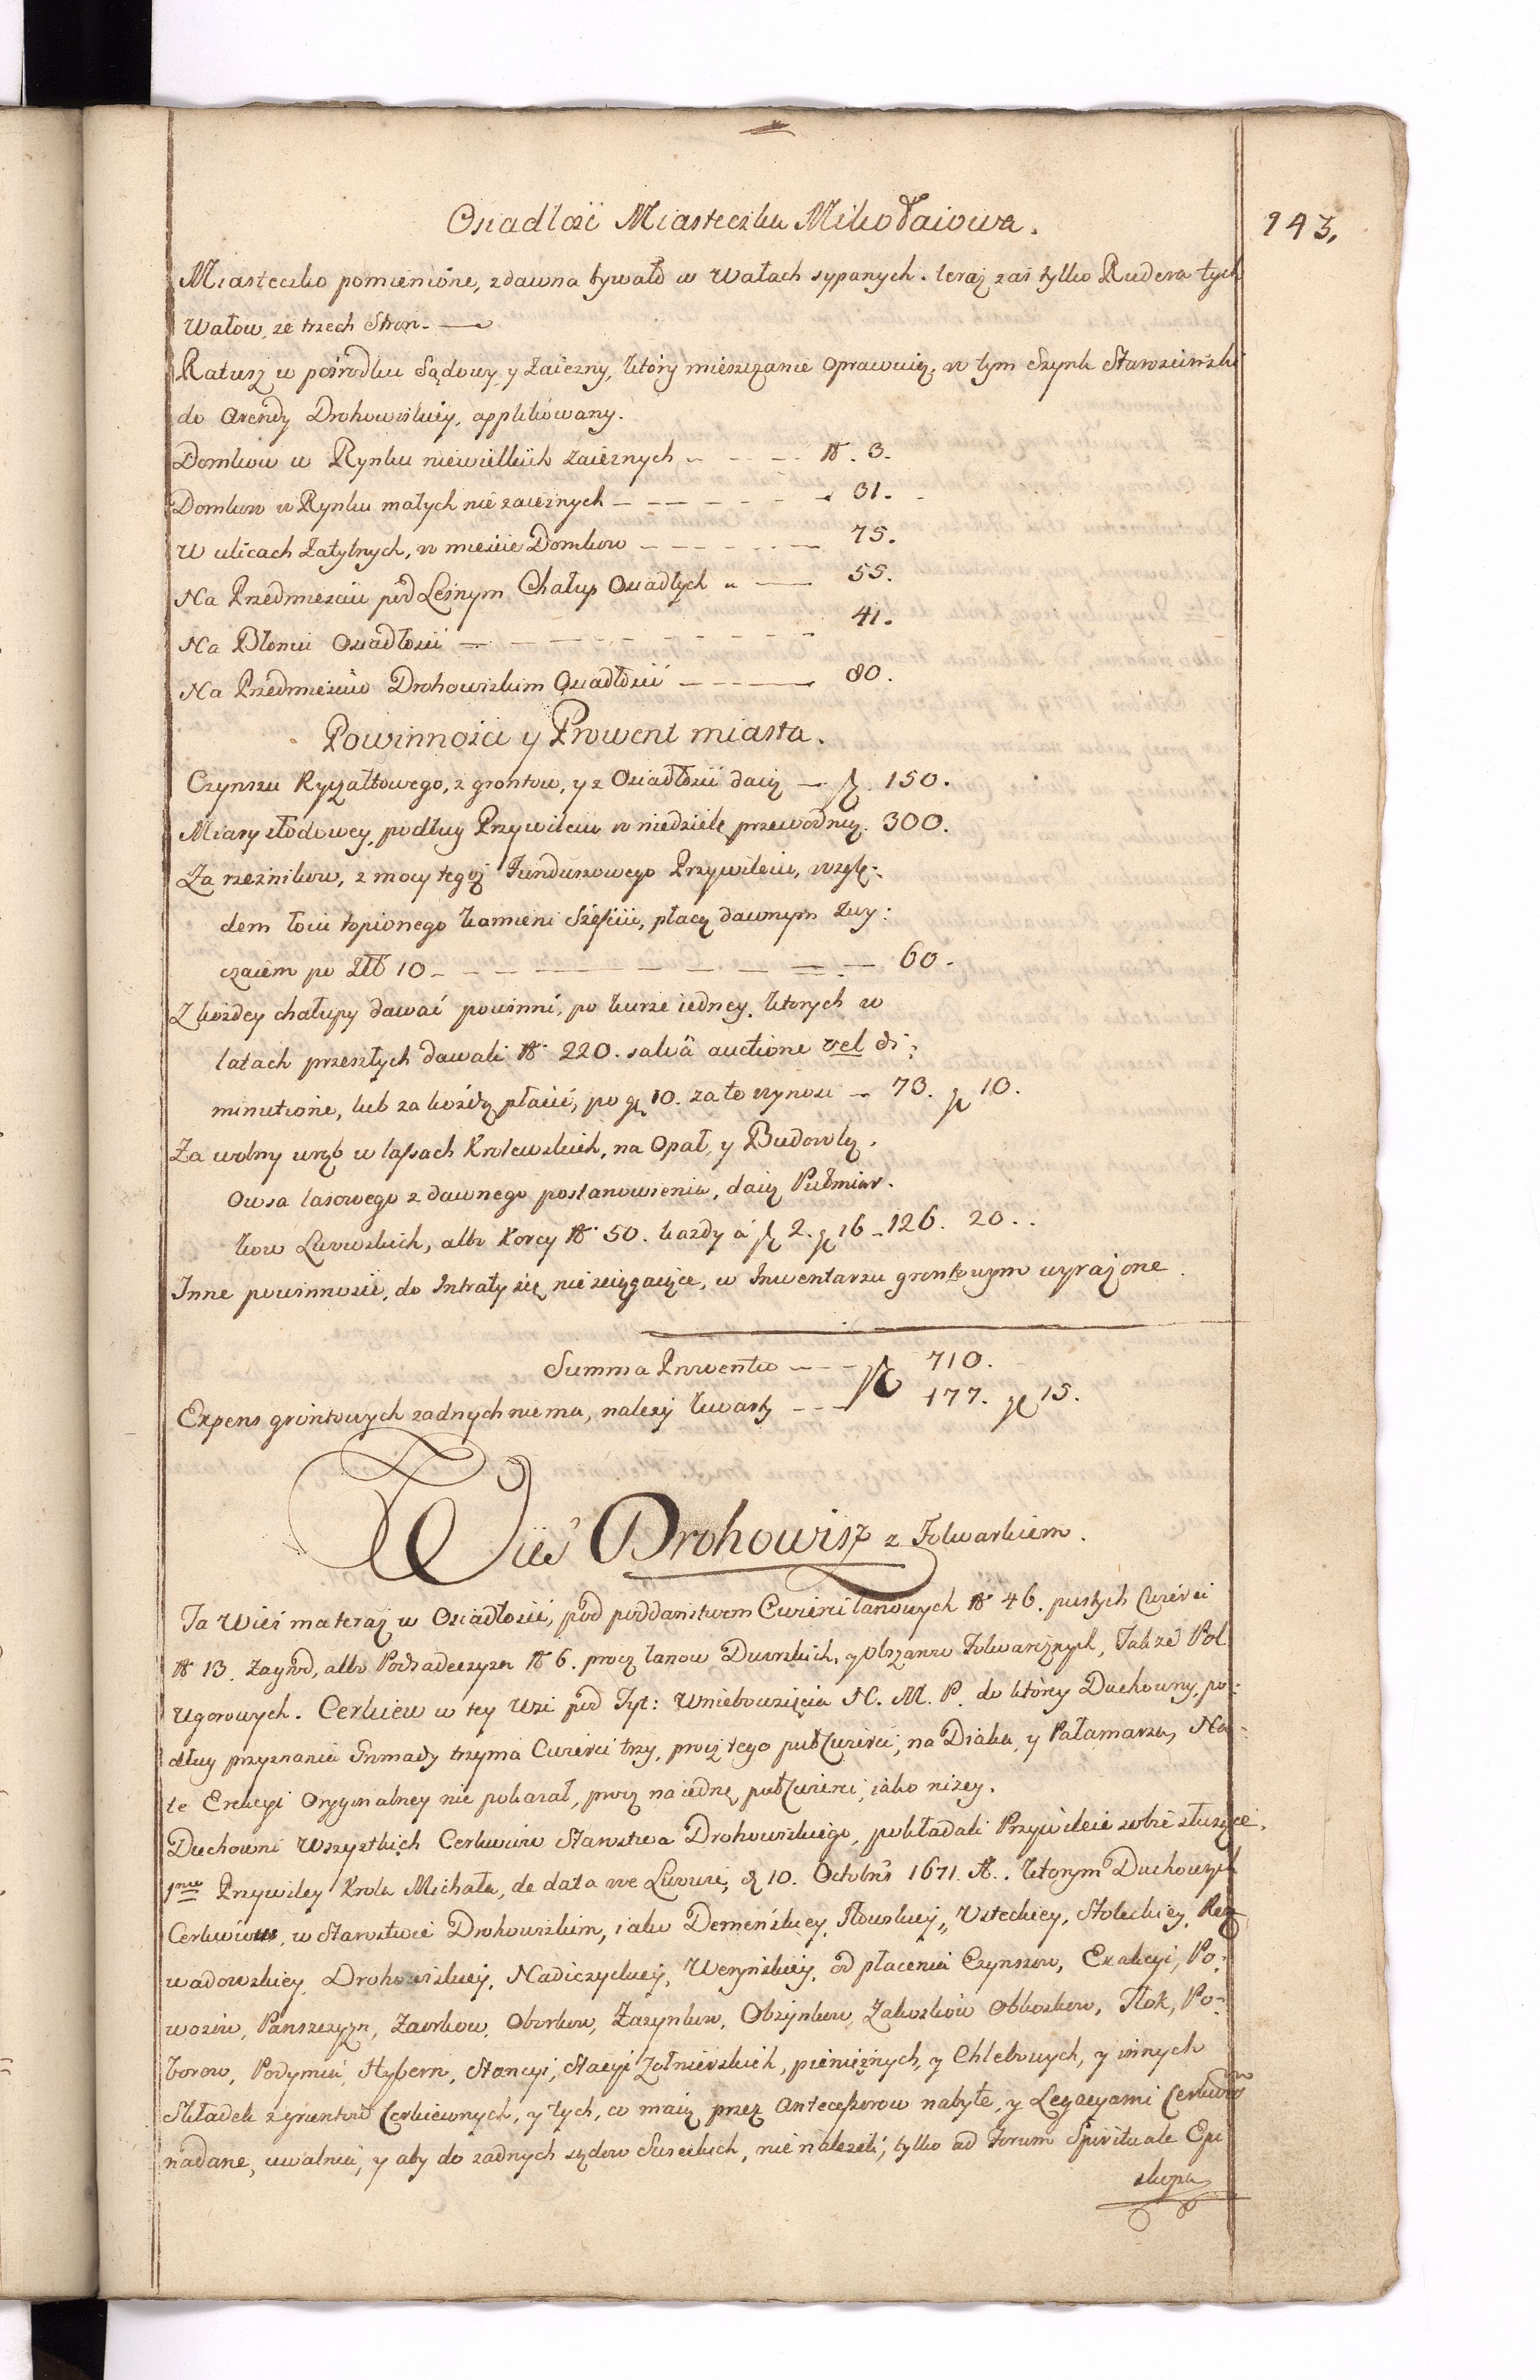 143.
Osiadłość Miasteczka Mikołaiowa.
Miasteczko pomienione, zdawna bywało w Wałach sypanych. teraz zaś tylko Rudera tych
Wałow, ze trzech Stron. —
Ratusz w pośrodku Sądowy y Zaiezny, ktory mieszczanie oprawuią, w tym Szynk Starościński
do Arendy Drohowiskiey, applikowany.
Domkow w Rynku niewielkich Zaieznych - - - - № . 3.
Domkow w Rynku małych nie zaieznych - - - - - - 31.
W ulicach Zatylnych, w mieście Domkow - - - - - - 75.
Na Przedmieściu pod Leśnym Chałup Osiadłych - — 55.
Na Błoniu Osiadłości - - - - - - - - - 41.
Na Przedmieściu Drohowiskim Osiadłości - - - - — 80.
Powinności y Prowent miasta.
Czynszu Ryczałtowego, z grontow, y z Osiadłości daią — fl. 150.
Miary słodowey, podług Przywileiu w niedzielę przewodnią. 300.
Za rzeźnikow, z mocy tegoż Funduszowego Przywileiu, wzglę:
dem łoiu topionego kamieni Sześciu, płacą dawnym Zwy:
czaiem po Złł 10 - - - - - - - - 60.
Z kożdey chałupy dawać powinni, po kurze iedney. ktorych w
latach przeszłych dawali № 220. salvâ auctione vel di:
minutione, lub za kożdą płacić, po gr 10. za to wynosi — 73. gr 10.
Za wolny wrąb w lassach Krolewskich, na Opał, y Budowlą.
Owsa lasowego z dawnego postanowienia, daią Pułmiar.
kow Lwowskich, albo Korcy № 50. kazdy á fl 2. gr 16 - 126. 20..
Inne powinności, do Intraty się nie ściągaiące, w Inwentarzu grontowym wyrażone.
Summa Prowentu - - - fl 710.
Expens grontowych zadnych niema, nalezy kwarty - - - 177. gr 15.
Wieś Drohowisz z Folwarkiem.
Ta Wieś ma teraz w Osiadłości, pod poddaństwem Cwierci łanowych № 46. pustych Cwierci
№ 13. Zagrod, albo Podsadczyzn № 6. procz łanow Dworskich, y Obszarow Folwarcznych, Takze Pol
Ugorowych. Cerkiew w tey Wsi pod Tyt: Wniebowzięcia N. M. P. do ktorey Duchowny, po:
dług przyznania Gromady trzyma Cwierci trzy, procz tego puł Cwierci, na Diaka, y Pałamarza, Na
te Erekcyi Oryginalney nie pokazał, procz na iednę puł Cwierci, iako nizey.
Duchowni Wszystkich Cerkwiow Starostwa Drohowskiego, pokładali Przywileie sobie służące.
1mo Przywiley Krola Michała, de data we Lwowie, d 10. Octobris 1671. A.. ktorym Duchownych
Cerkwiow, w Starostwie Drohowskim, iako Demeńskiey, Iłowskiey, Usteckiey, Stoleckiey, Roz
wadowskiey, Drohowiskiey, Nadiczyckiey, Weryńskiey, od płacenia Czynszow, Exakcyi, Po:
wozow, Panszczyzn, Zaorkow, Oborkow, Zazynkow, Obzynkow, Zakoskow Obkoskow, Tłok, Po:
borow, Podymia, Hybern, Stancyi, Stacyi Żołnierskich, pieniężnych, y Chlebowych, y innych
Składek z gruntow Cerkiewnych, y tych, co maią przez Antecessorow nabyte, y Legacyami Cerkwiom
nadane, uwalnia, y aby do zadnych sądow Swieckich, nie nalezeli, tylko ad Forum Spirituale Epi
skopa